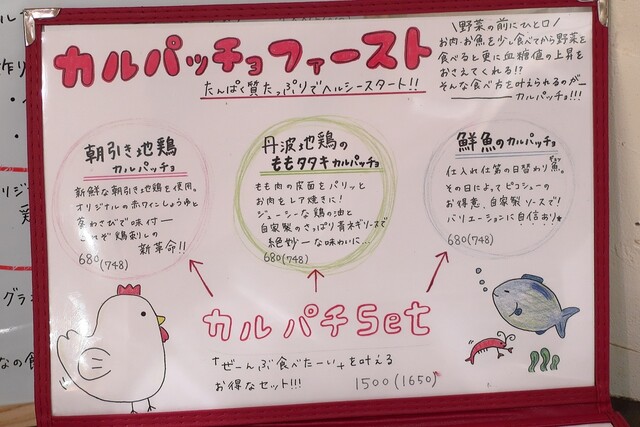 カルパッチョファースト
たんぱく質たっぷりでヘルシースタート!!
\野菜の前にひと口/
お肉・お魚を少し食べてから野菜を
食べると更に血糖値の上昇を
おさえてくれる!?
そんな食べ方を叶えられるのが
カルパッチョ!!!
朝引き地鶏
カルパッチョ
新鮮な朝引き地鶏を使用。
オリジナルのホワイトしょうゆと
葉わさびで味付ー
鶏刺しの
新革命!!
680(748)
丹波地鶏の
ももタタキカルパッチョ
もも肉の皮面をパリッと
お肉をレア焼きに!
ジューシーな鶏の油と
自家製のさっぱり青ネギソースで
絶妙ーな味わいに...
680(748)
鮮魚のカルパッチョ
仕入れ仕第の日替わり魚。
その日によってピコシューの
お得意、自家製ソースで!
バリエーションに自信あり★
680(748)
カルパチSet
「ぜーんぶ食べたーい」を叶える
お得なセット!!!
1500(1650)